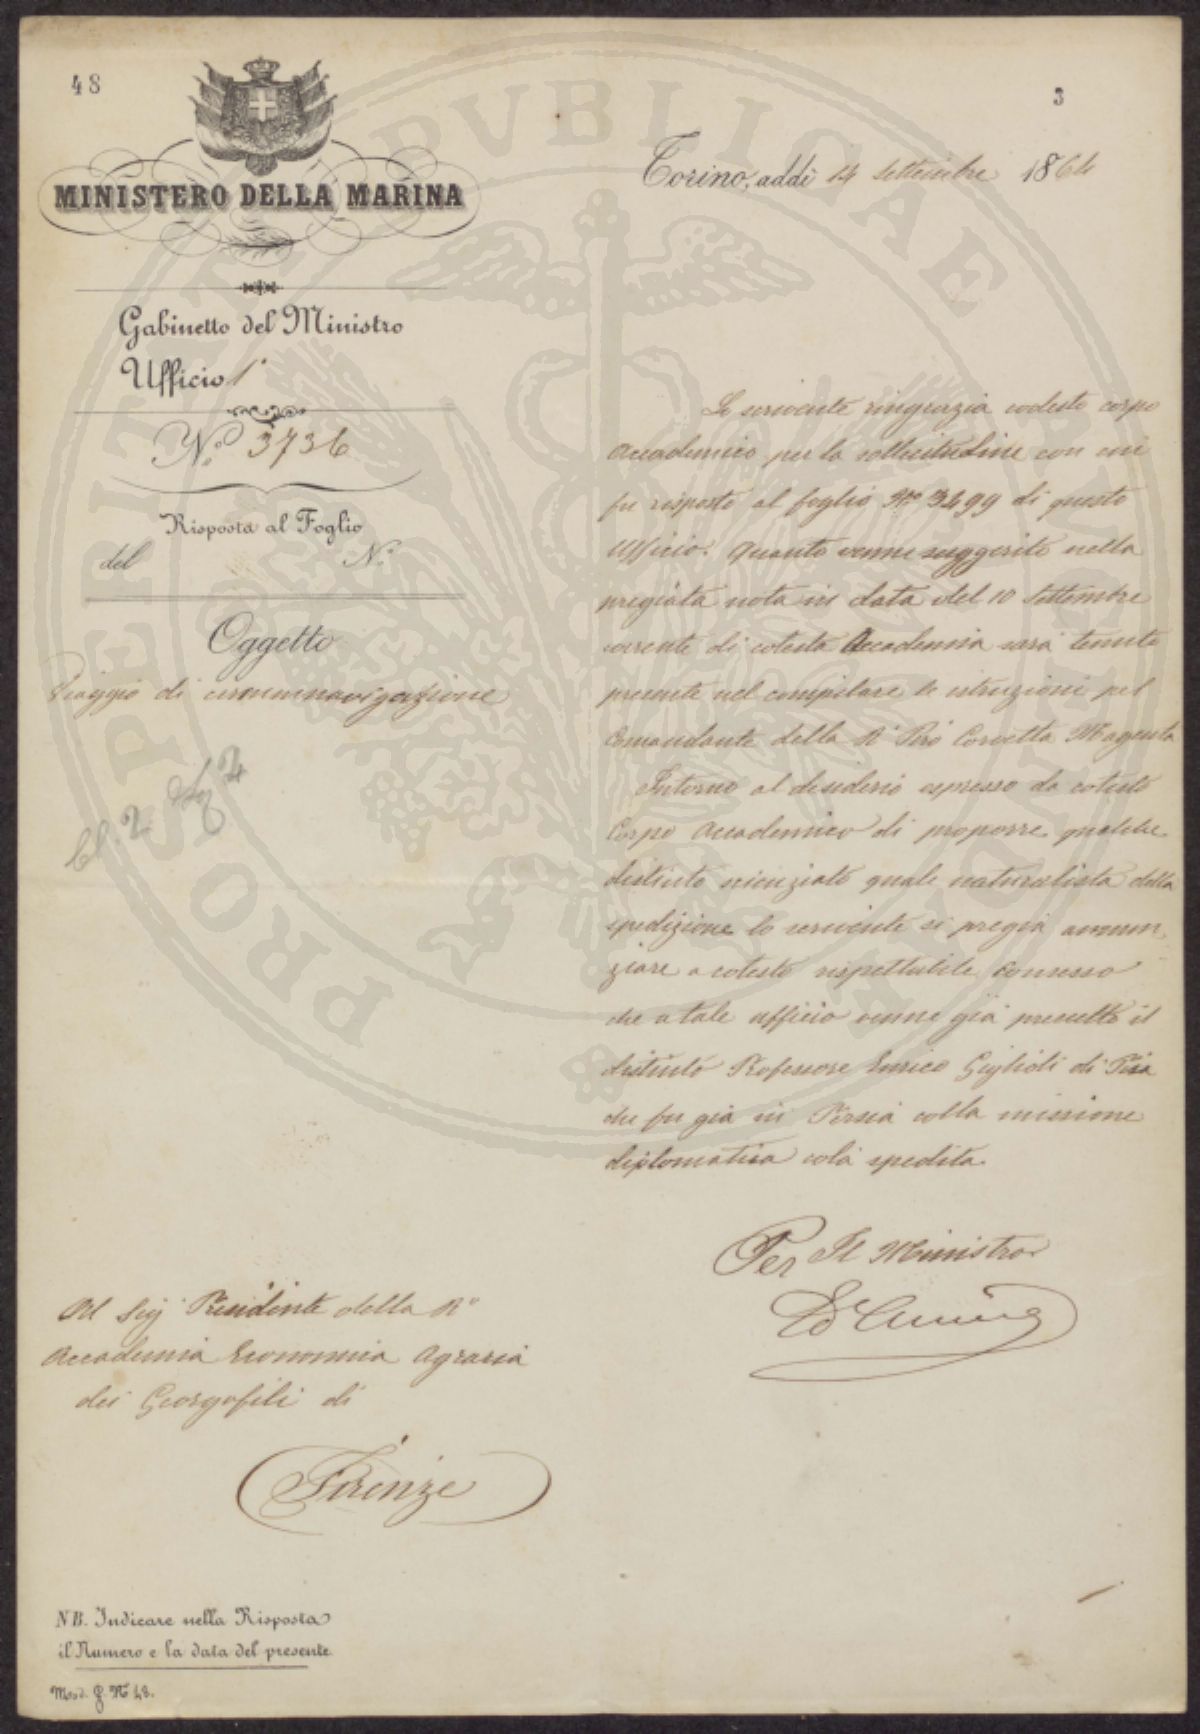 48
3
MINISTERO DELLA MARINA
Torino, addì 14 Settembre 1864
Gabinetto del Ministro
Ufficio 1°
N.° 3736
Risposta al Foglio
del N.°
Oggetto
Viaggio di circumnavigazione
Cl. 2
Lo scrivente ringrazia codesto corpo
Accademico per la sollecitudine con cui
fu risposto al foglio N° 3499 di questo
Ufficio. Quanto venne suggerito nella
pregiata nota in data del 10 Settembre
corrente di cotesta Accademia sarà tenuto
presente nel compilare le istruzioni pel
Comandante della Ra Piro Corvetta Magenta
Intorno al desiderio espresso da cotesto
Corpo Accademico di proporre qualche
distinto scienziato quale naturalista della
spedizione lo scrivente si pregia annun
ziare a cotesto rispettabile Consesso
che a tale ufficio venne già prescelto il
distinto Professore Enrico Giglioli di Pisa
che fu già in Persia colla missione
diplomatica colà spedita.
Per Il Ministro
Al Sig. Presidente della Ra
Accademia Economica Agraria
dei Georgofili di
Firenze
NB. Indicare nella Risposta
il Numero e la data del presente
Mod. G. N 48.
PROSPERITATI PVBLICAE AVGENDAE